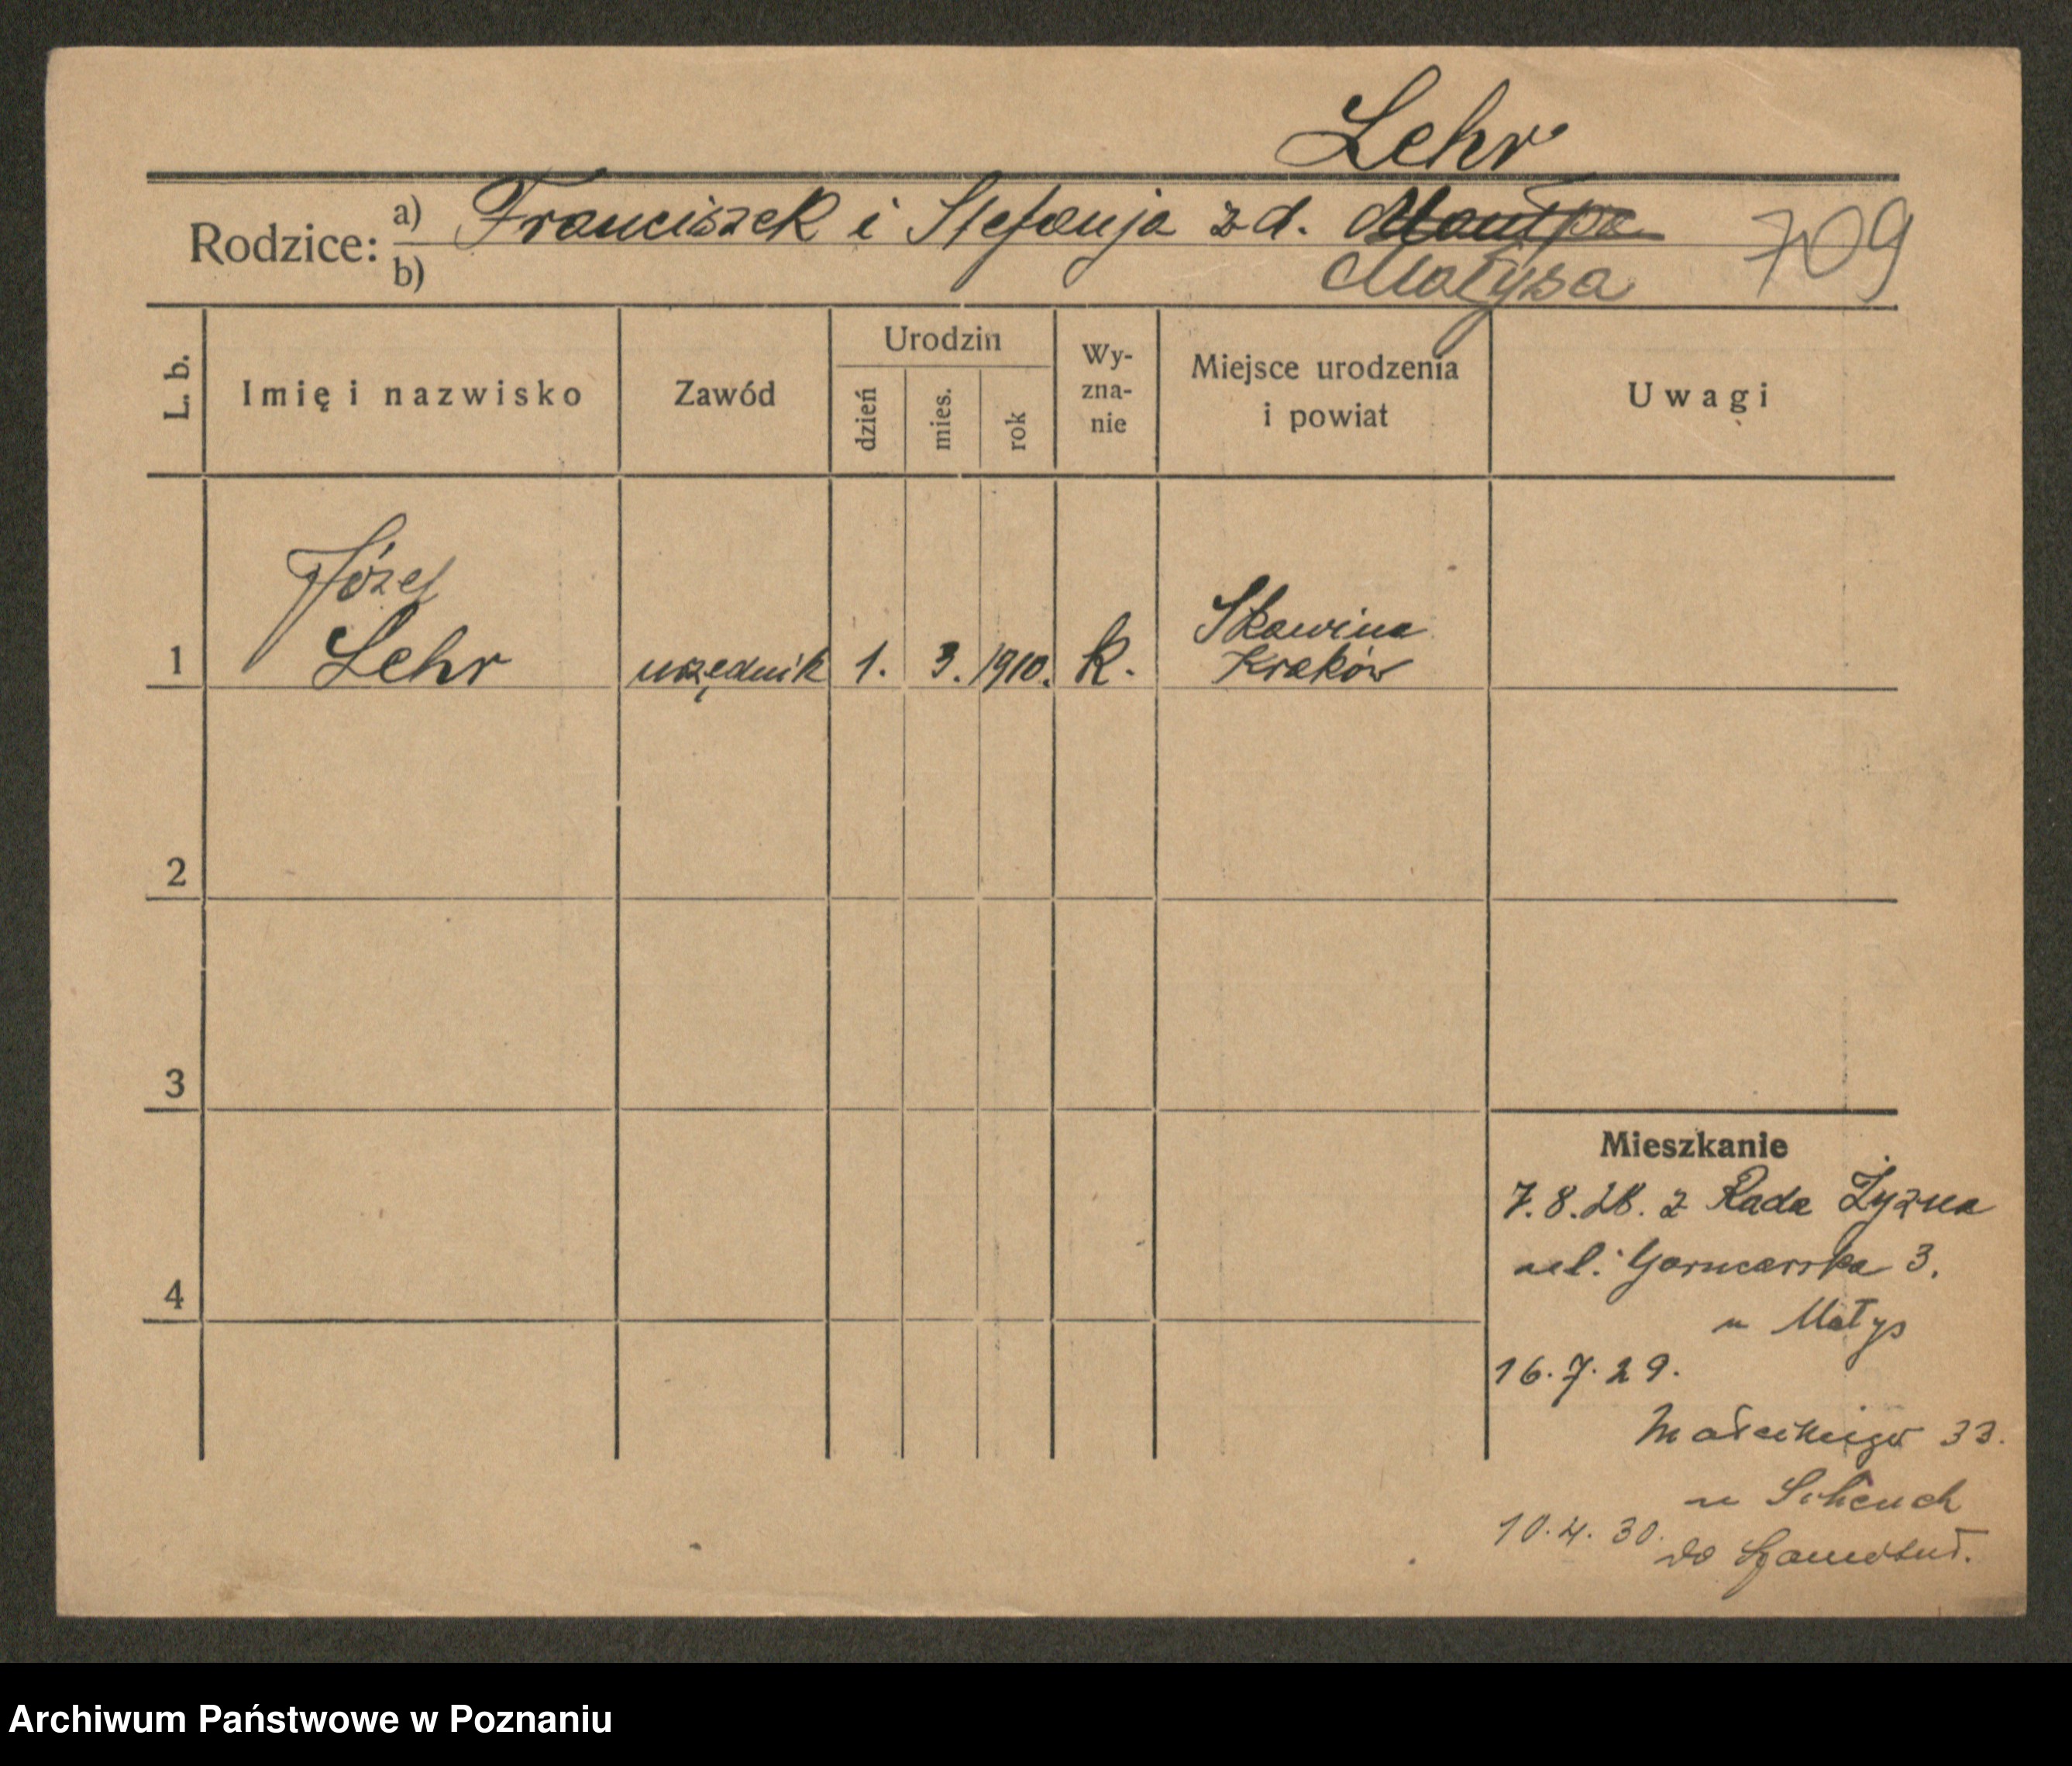 Lehr
Rodzice: a) Franciszek i Stefanja z d.
b) Małysa 709
L. b. Imię i nazwisko Zawód Urodzin dzień mies. rok Wy-zna-nie Miejsce urodzenia i powiat Uwagi
Józef
Lehr
1 urzędnik 1. 3. 1910. k. Skawina
Kraków
2
3
4
Mieszkanie
7.8.28. z Rada Żyzna
ul. Garncarska 3.
u Małys
16.7.29.
Małeckiego 33.
u Scheuch
10.4.30. do Szamotuł.
Archiwum Państwowe w Poznaniu